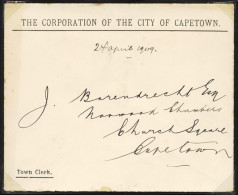 THE CORPORATION OF THE CITY OF CAPETOWN.
2 April 1909.
J. Barendrecht Esq
Norwood Chambers
Church Square
Cape Town
Town Clerk.